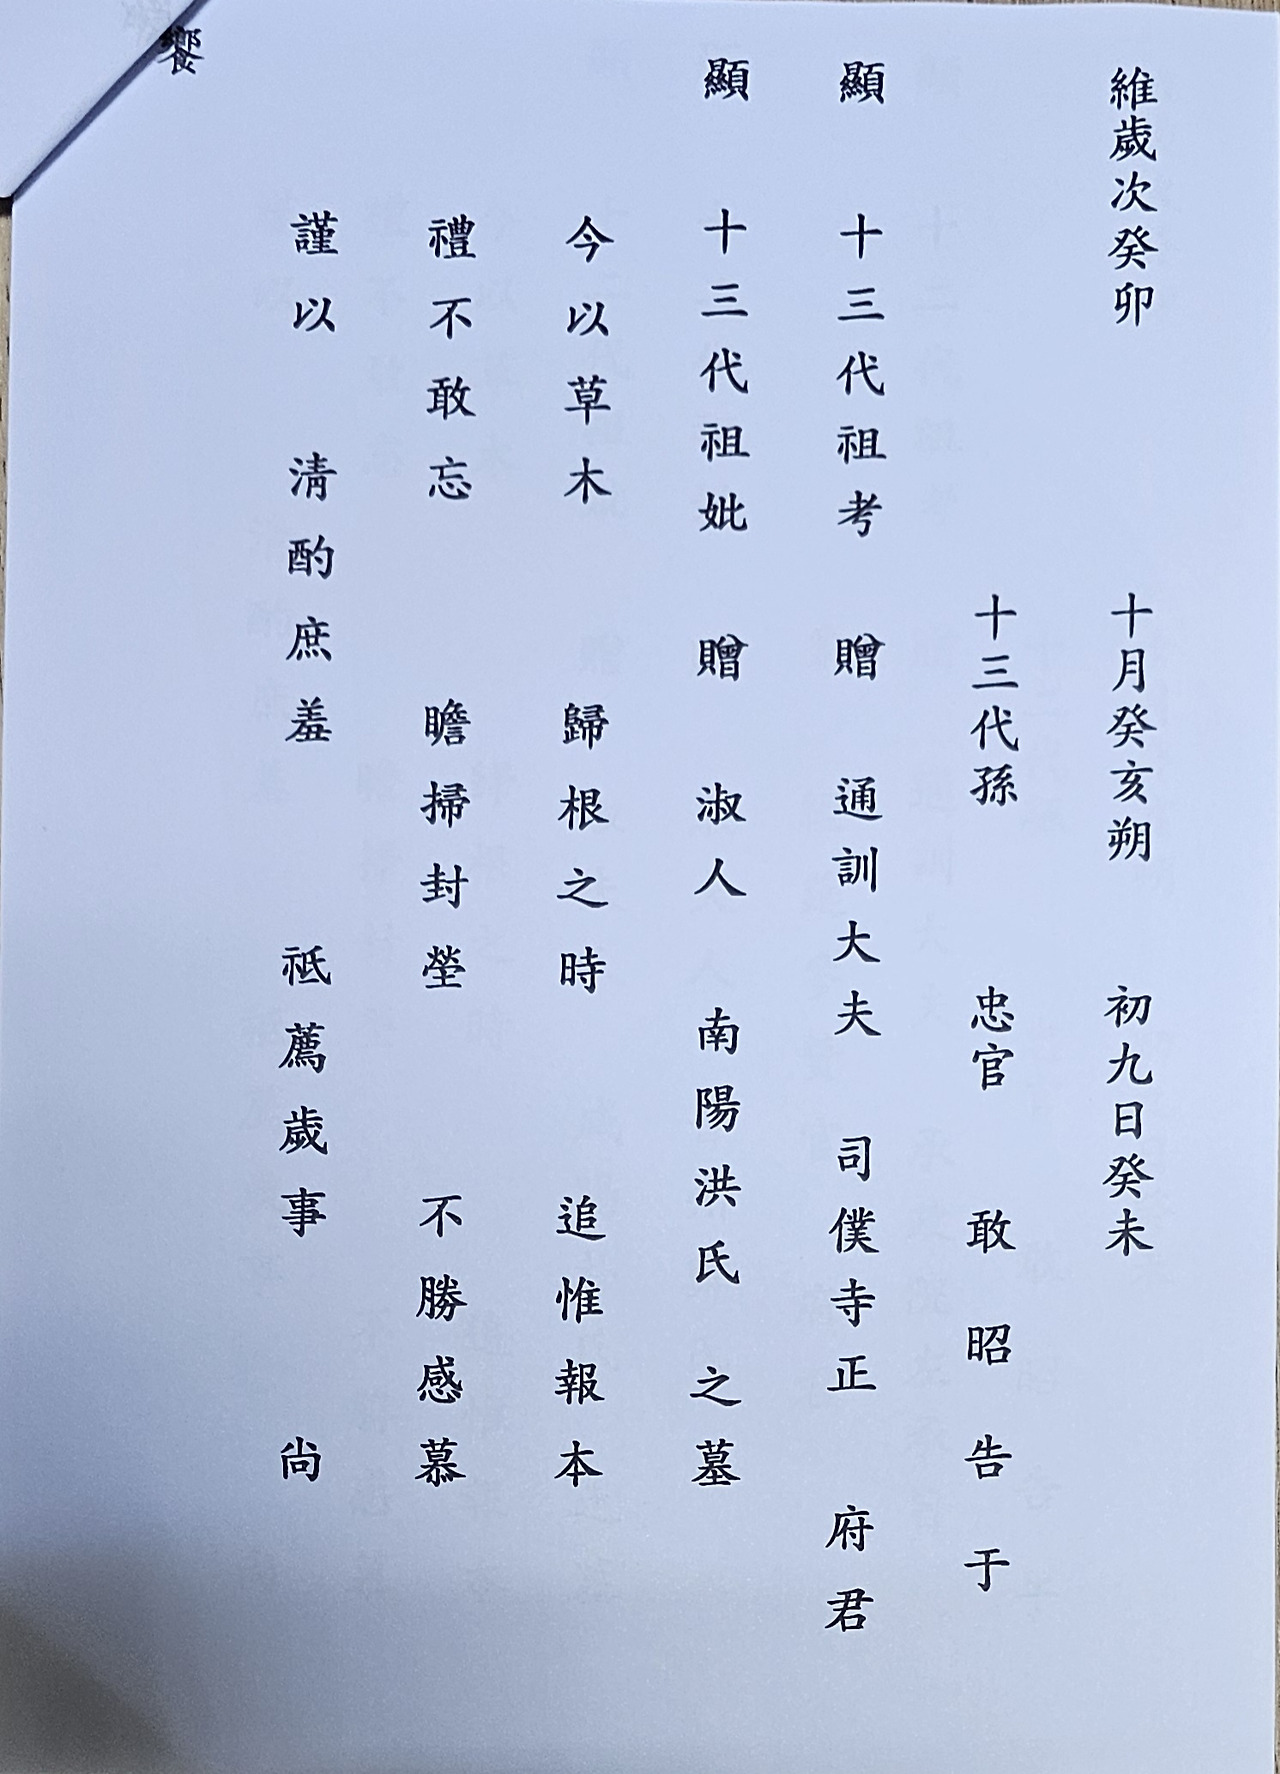 維歲次癸卯 十月癸亥朔 初九日癸未
十三代孫 忠官 敢昭告于
顯 十三代祖考 贈 通訓大夫 司僕寺正 府君
顯 十三代祖妣 贈 淑人 南陽洪氏 之墓
今以草木 歸根之時 追惟報本
禮不敢忘 瞻掃封塋 不勝感慕
謹以 淸酌庶羞 祗薦歲事 尙
饗